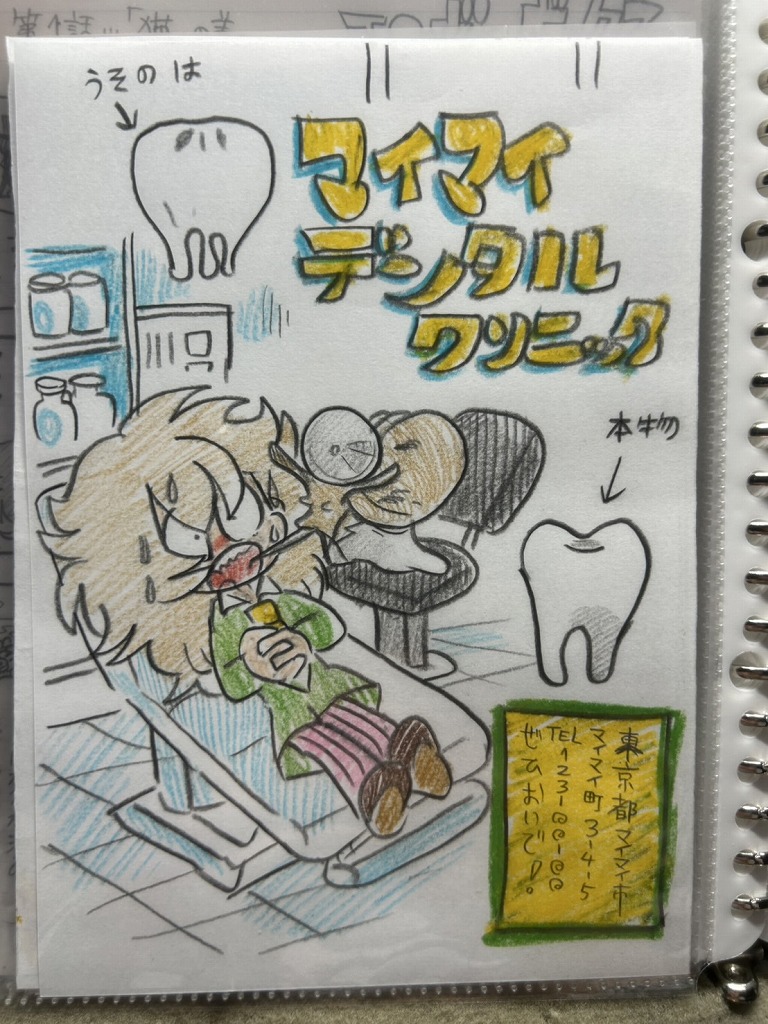 うその は
マイマイ
デンタル
クリニック
本物
東京都マイマイ市
マイマイ町3-4-5
TEL
123-@@-@@
ぜひおいで!。